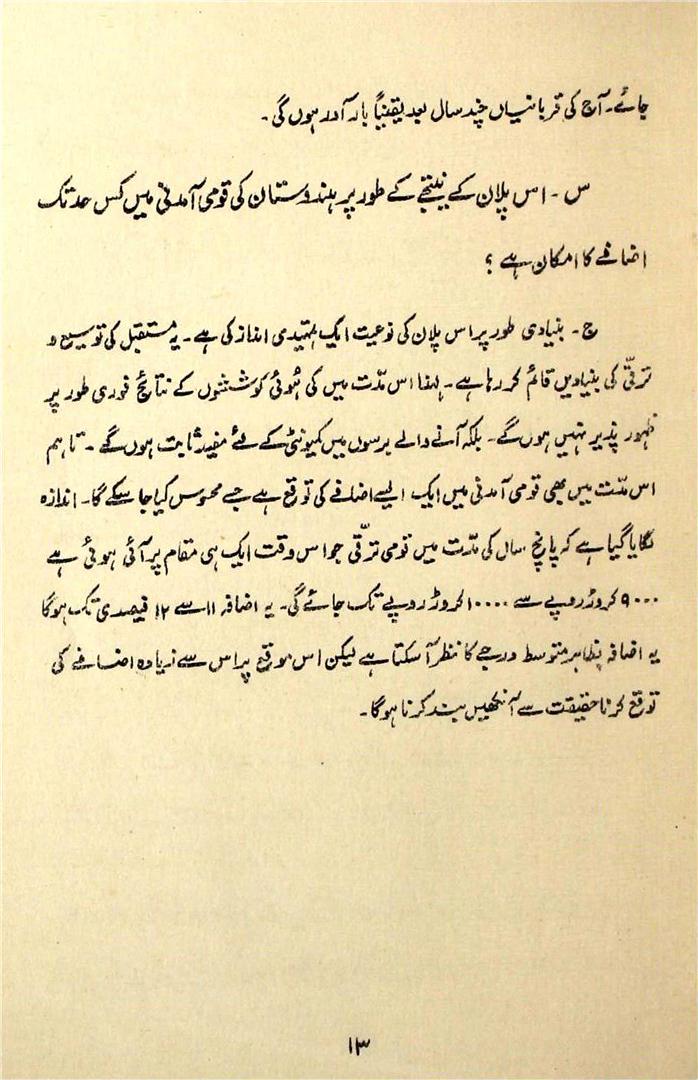 جائے۔ آج کی قربانیاں چند سال بعد یقیناً بار آور ہوں گی۔
س۔ اس پلان کے نیتجے کے طور پر ہندوستان کی قومی آمدنی میں کس حد تک
اضافے کا امکان ہے ؟
ج۔ بنیادی طور پر اس پلان کی نوعیت ایک تمہیدی انداز کی ہے۔ یہ مستقبل کی توسیع و
ترقّی کی بنیادیں قائم کر رہا ہے۔ لہٰذا اس مدّت میں کی ہُوئی کوششوں کے نتائج فوری طور پر
ظہور پذیر نہیں ہوں گے۔ بلکہ آنے والے برسوں میں کمیونٹی کے لئے مفید ثابت ہوں گے۔ تاہم
اس مدّت میں بھی قومی آمدنی میں ایک ایسے اضافے کی توقع ہے جسے محسوس کیا جا سکے گا۔ اندازہ
لگایا گیا ہے کہ پانچ سال کی مدّت میں قومی ترقّی جو اس وقت ایک ہی مقام پر آئی ہوئی ہے
۹۰۰۰ کروڑ روپے سے ۱۰۰۰۰ کروڑ روپے تک جائے گی۔ یہ اضافہ ۱۱ سے ۱۲ فیصدی تک ہوگا
یہ اضافہ بظاہر متوسط درجے کا نظر آ سکتا ہے لیکن اس موقع پر اس سے زیادہ اضافے کی
توقع کرنا حقیقت سے آنکھیں بند کرنا ہوگا۔
۱۳